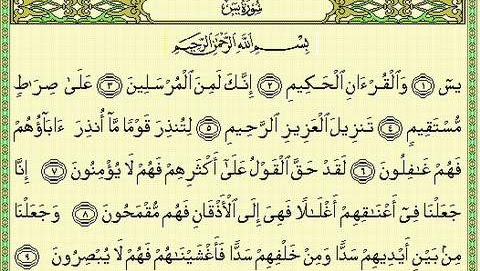 سُورَةُ يسٓ
بِسْمِ ٱللَّهِ ٱلرَّحْمَٰنِ ٱلرَّحِيمِ
يسٓ ﴿١﴾ وَٱلْقُرْءَانِ ٱلْحَكِيمِ ﴿٢﴾ إِنَّكَ لَمِنَ ٱلْمُرْسَلِينَ ﴿٣﴾ عَلَىٰ صِرَٰطٍ
مُّسْتَقِيمٍ ﴿٤﴾ تَنزِيلَ ٱلْعَزِيزِ ٱلرَّحِيمِ ﴿٥﴾ لِتُنذِرَ قَوْمًا مَّآ أُنذِرَ ءَابَآؤُهُمْ
فَهُمْ غَٰفِلُونَ ﴿٦﴾ لَقَدْ حَقَّ ٱلْقَوْلُ عَلَىٰٓ أَكْثَرِهِمْ فَهُمْ لَا يُؤْمِنُونَ ﴿٧﴾ إِنَّا
جَعَلْنَا فِىٓ أَعْنَٰقِهِمْ أَغْلَٰلًا فَهِىَ إِلَى ٱلْأَذْقَانِ فَهُم مُّقْمَحُونَ ﴿٨﴾ وَجَعَلْنَا
مِنۢ بَيْنِ أَيْدِيهِمْ سَدًّا وَمِنْ خَلْفِهِمْ سَدًّا فَأَغْشَيْنَٰهُمْ فَهُمْ لَا يُبْصِرُونَ ﴿٩﴾